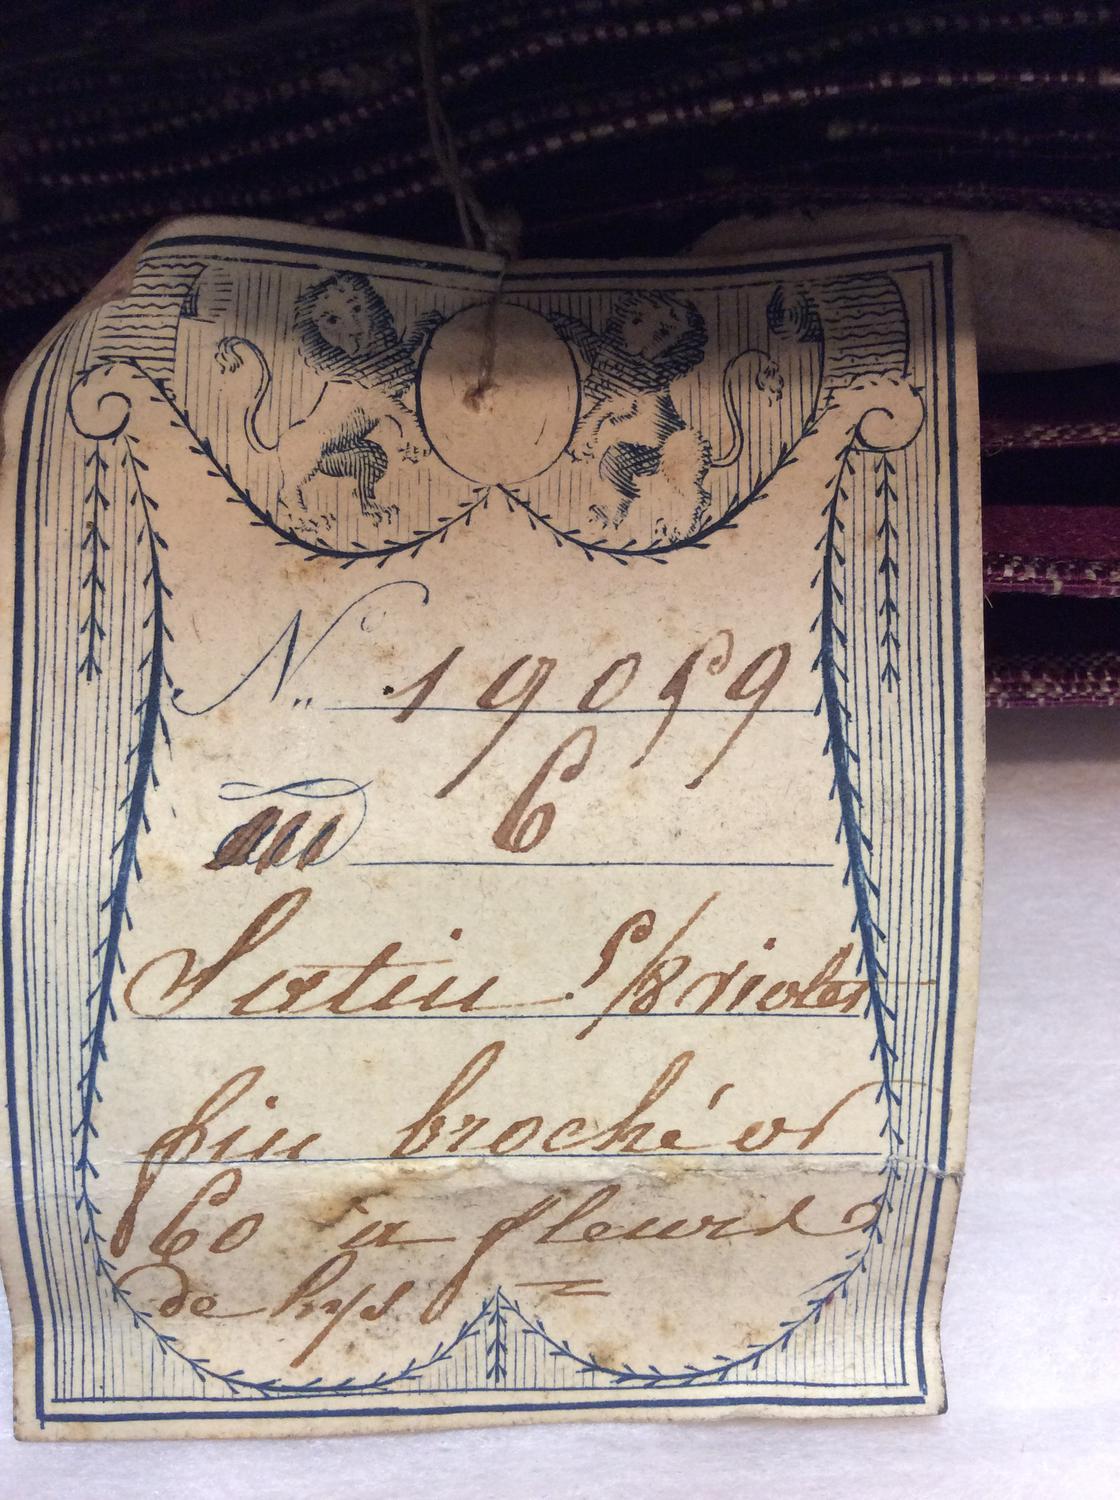 N.º 19059
au 6
Satin 5/8 violet
fin broché or
60 à fleurs
de lys